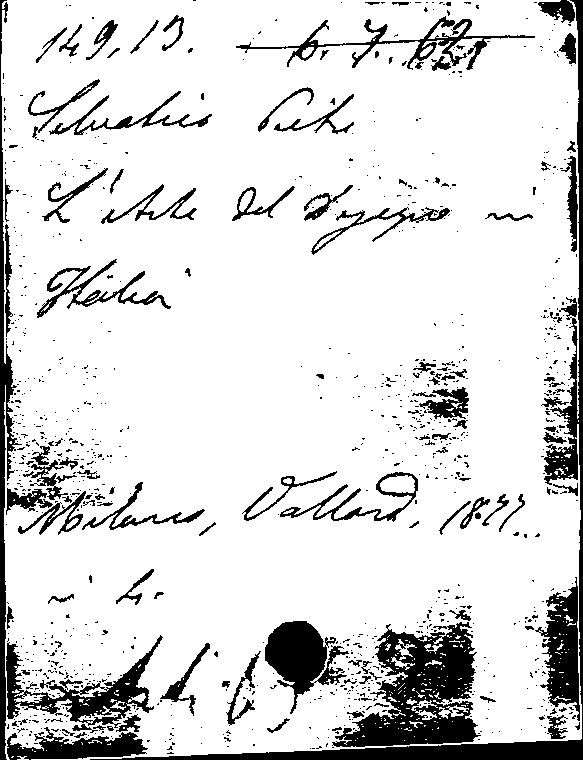 149.13. 6.7.63
Selvatico Pietro
L'Arte del Disegno in
Italia
Milano, Vallardi, 1877..
in 4.